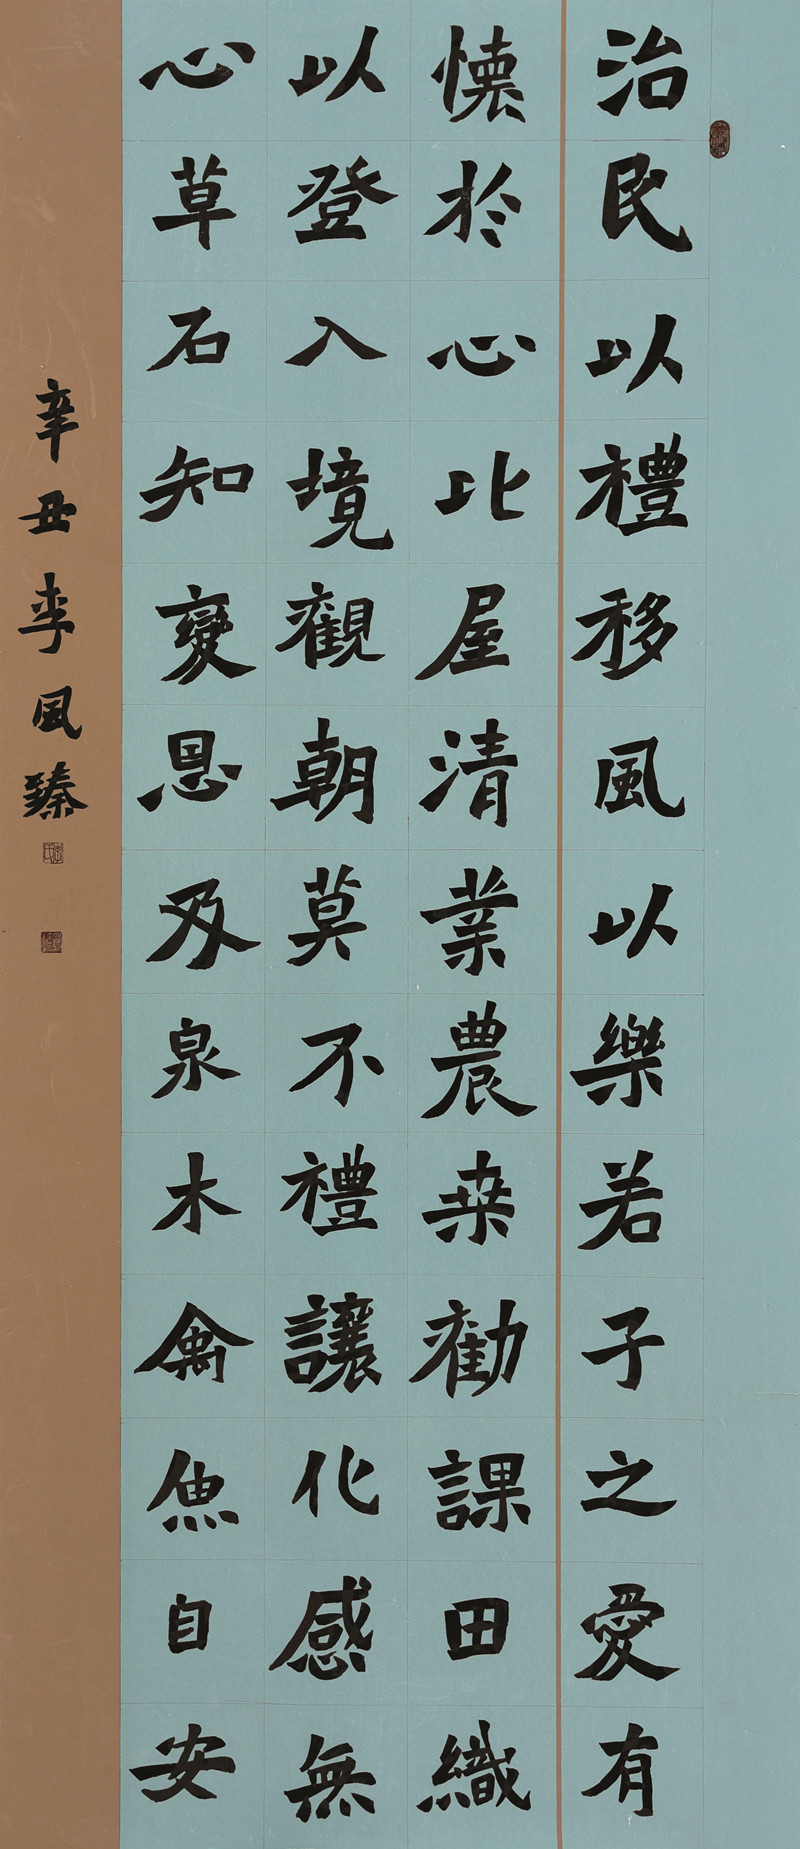 治民以禮移風以樂若子之愛有
懷於心比屋清業農桒勸課田織
以登入境觀朝莫不禮讓化感無
心草石知變恩及泉木禽魚自安
辛丑李風臻